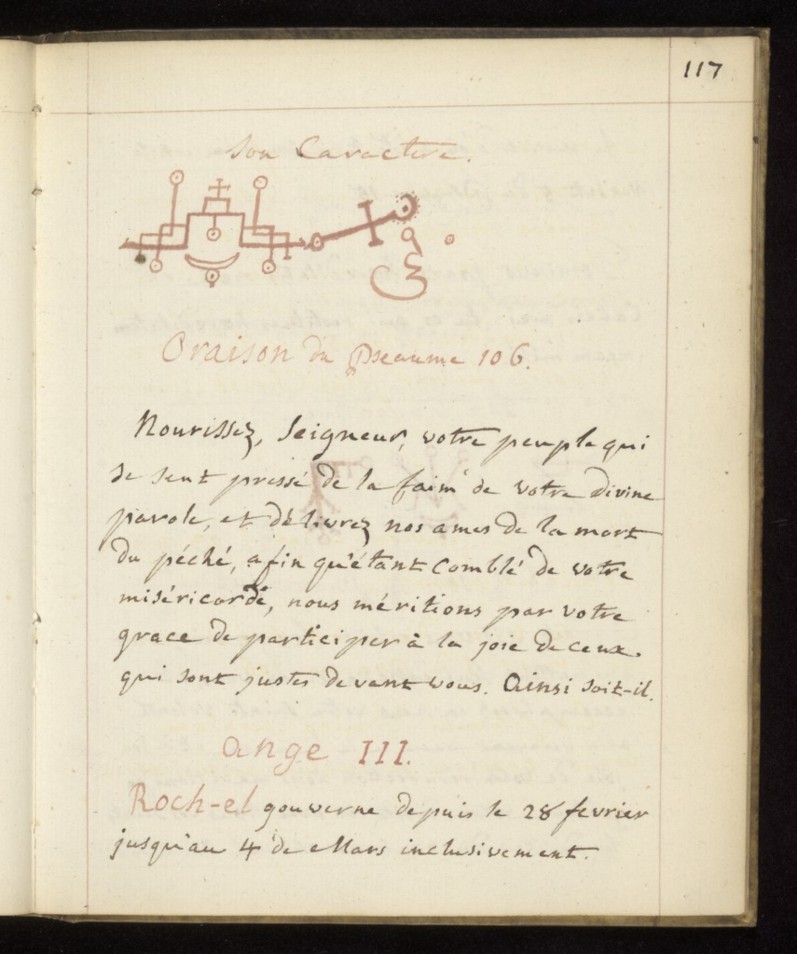 117
Son Caractere.
Oraison du Pseaume 106.
Nourissez, Seigneur, votre peuple qui
se sent pressé de la faim de votre divine
parole, et délivrez nos ames de la mort
du péché, afin qu'étant comblé de votre
miséricorde, nous méritions par votre
grace de participer à la joie de ceux
qui sont justes devant vous. Ainsi soit-il.
Ange III.
Roch-el gouverne depuis le 28 fevrier
jusqu'au 4 de Mars inclusivement.